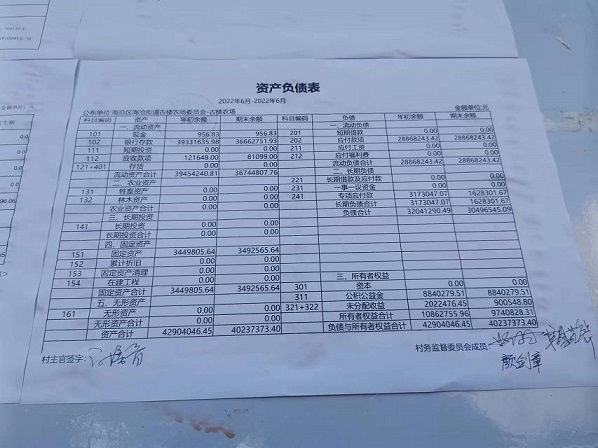 资产负债表
2022年6月-2022年6月
公布单位 海沧区海沧街道古楼农场委员会-古楼农场 金额单位:元
科目编码 资产 年初余额 期末余额 科目编码 负债 年初余额 期末余额
一、流动资产 一、流动负债
101 现金 956.83 956.83 201 短期借款 0.00 0.00
102 银行存款 39331635.98 36662751.93 202 应付款项 28868243.42 28868243.42
111 短期投资 0.00 0.00 211 应付工资 0.00 0.00
112 应收款项 121648.00 81099.00 212 应付福利费 0.00 0.00
121+401 存货 0.00 0.00 流动负债合计 28868243.42 28868243.42
流动资产合计 39454240.81 36744807.76 二、长期负债
二、农业资产 221 长期借款及应付款 0.00 0.00
131 牲畜资产 0.00 0.00 231 一事一议资金 0.00 0.00
132 林木资产 0.00 0.00 241 专项应付款 3173047.07 1628301.67
农业资产合计 0.00 0.00 长期负债合计 3173047.07 1628301.67
三、长期投资 负债合计 32041290.49 30496545.09
141 长期投资 0.00 0.00
长期投资合计 0.00 0.00
四、固定资产
151 固定资产 3449805.64 3492565.64
152 累计折旧 0.00 0.00
153 固定资产清理 0.00 0.00 三、所有者权益
154 在建工程 0.00 0.00 301 资本 0.00 0.00
固定资产合计 3449805.64 3492565.64 311 公积公益金 8840279.51 8840279.51
五、无形资产 321+322 未分配收益 2022476.45 900548.80
161 无形资产 0.00 0.00 所有者权益合计 10862755.96 9740828.31
无形资产合计 0.00 0.00 负债与所有者权益合计 42904046.45 40237373.40
资产合计 42904046.45 40237373.40
村主官签字: 村务监督委员会成员:
颜剑章